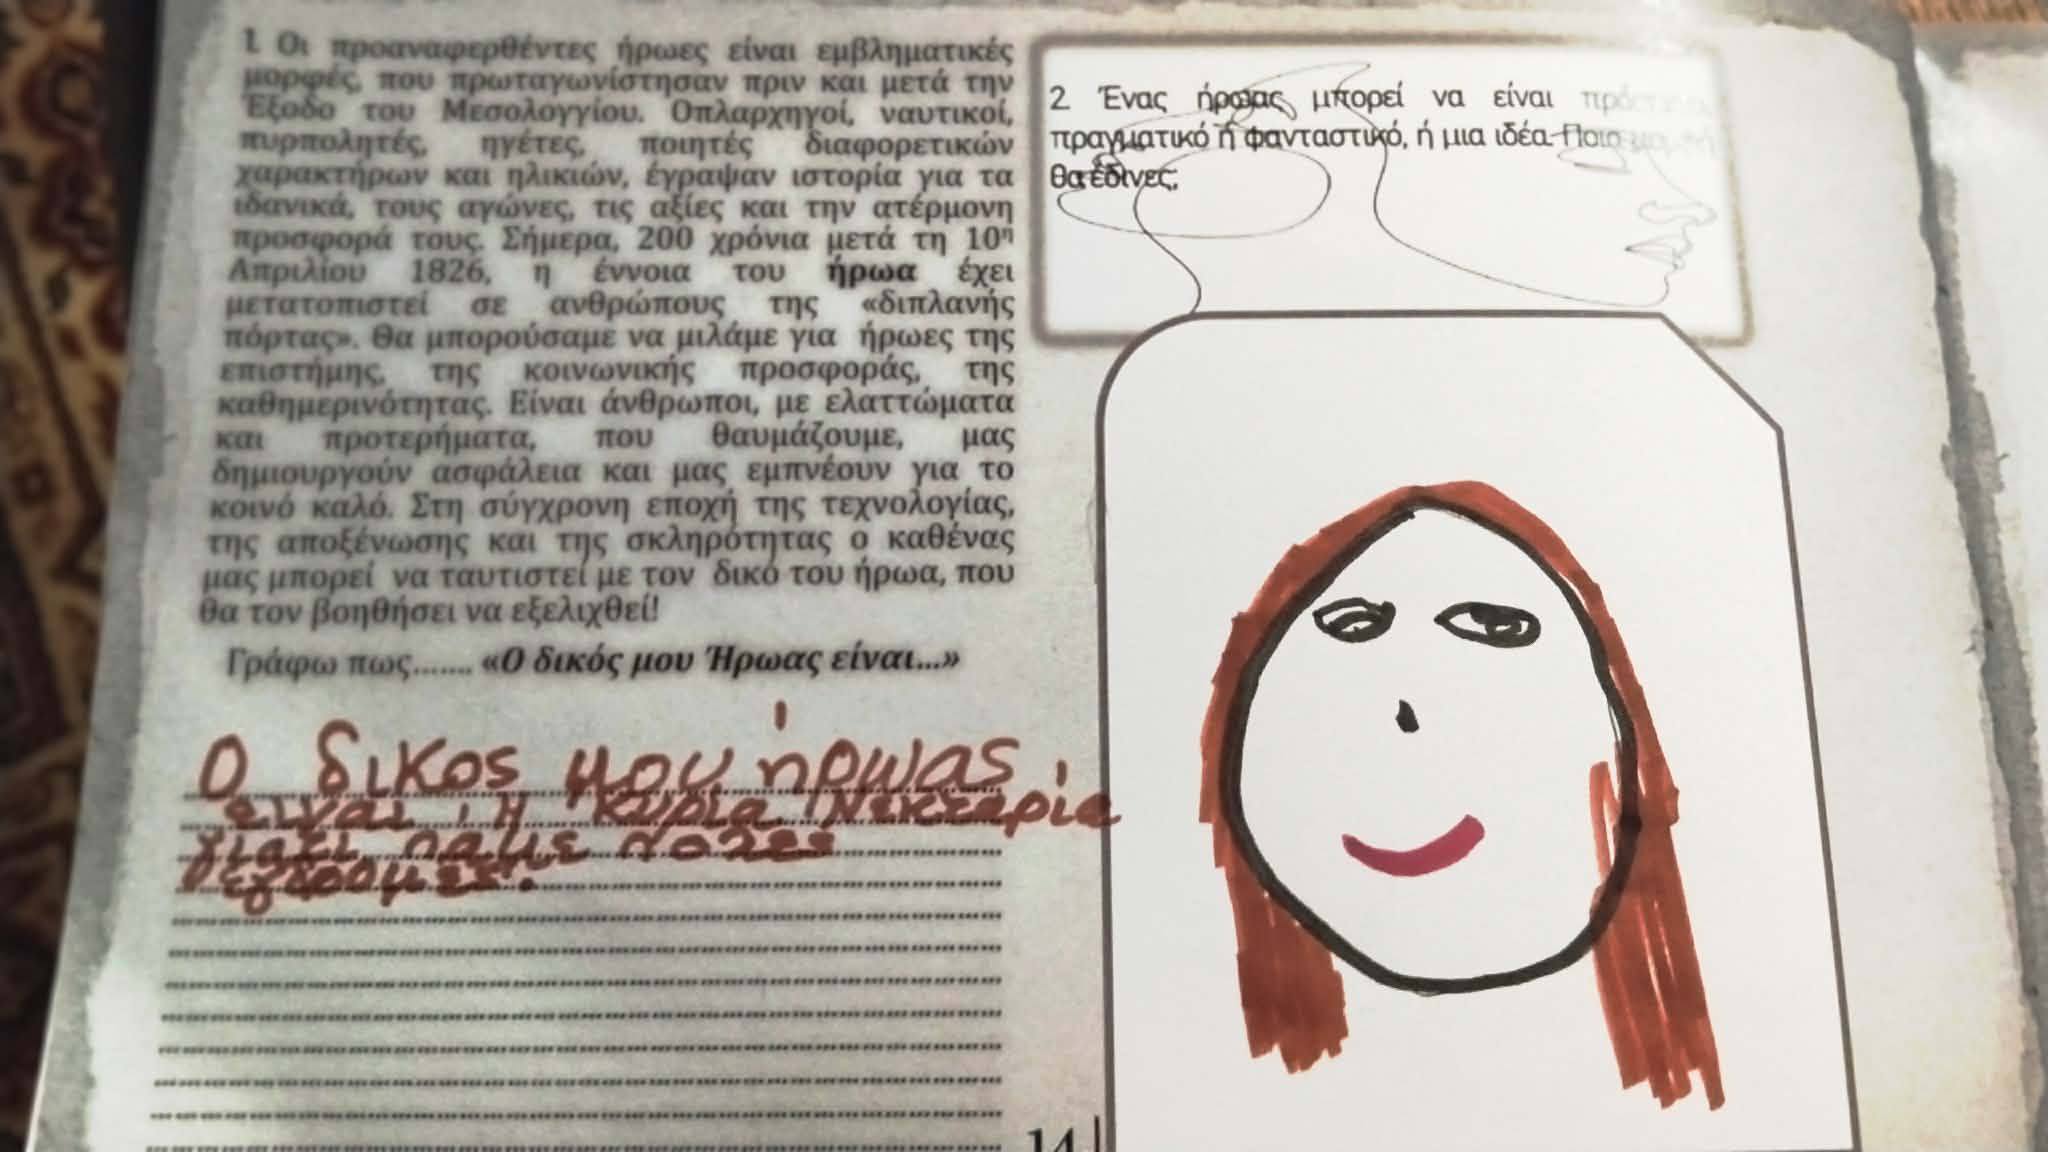 1. Οι προαναφερθέντες ήρωες είναι εμβληματικές
μορφές, που πρωταγωνίστησαν πριν και μετά την
Έξοδο του Μεσολογγίου. Οπλαρχηγοί, ναυτικοί,
πυρπολητές, ηγέτες, ποιητές διαφορετικών
χαρακτήρων και ηλικιών, έγραψαν ιστορία για τα
ιδανικά, τους αγώνες, τις αξίες και την ατέρμονη
προσφορά τους. Σήμερα, 200 χρόνια μετά τη 10η
Απριλίου 1826, η έννοια του ήρωα έχει
μετατοπιστεί σε ανθρώπους της «διπλανής
πόρτας». Θα μπορούσαμε να μιλάμε για ήρωες της
επιστήμης, της κοινωνικής προσφοράς, της
καθημερινότητας. Είναι άνθρωποι, με ελαττώματα
και προτερήματα, που θαυμάζουμε, μας
δημιουργούν ασφάλεια και μας εμπνέουν για το
κοινό καλό. Στη σύγχρονη εποχή της τεχνολογίας,
της αποξένωσης και της σκληρότητας ο καθένας
μας μπορεί να ταυτιστεί με τον δικό του ήρωα, που
θα τον βοηθήσει να εξελιχθεί!
Γράφω πως....... «Ο δικός μου Ήρωας είναι...»
Ο δικος μου ήρωας
ειναι η κυρία Νεκταρία
γιατί παμε πολες
εγδρομες.
2. Ένας ήρωας μπορεί να είναι
πραγματικό ή φανταστικό, ή μια ιδέα. Ποια
θα έδινες;
14